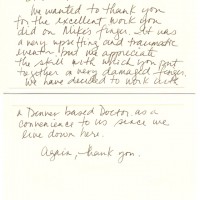 We wanted to thank you
for the excellent work you
did on Mike's finger. It was
a very upsetting and traumatic
event but we appreciate
the skill with which you put
together a very damaged finger.
We have decided to work with
a Denver based Doctor as a
convenience to us since we
live down here.
Again, thank you.